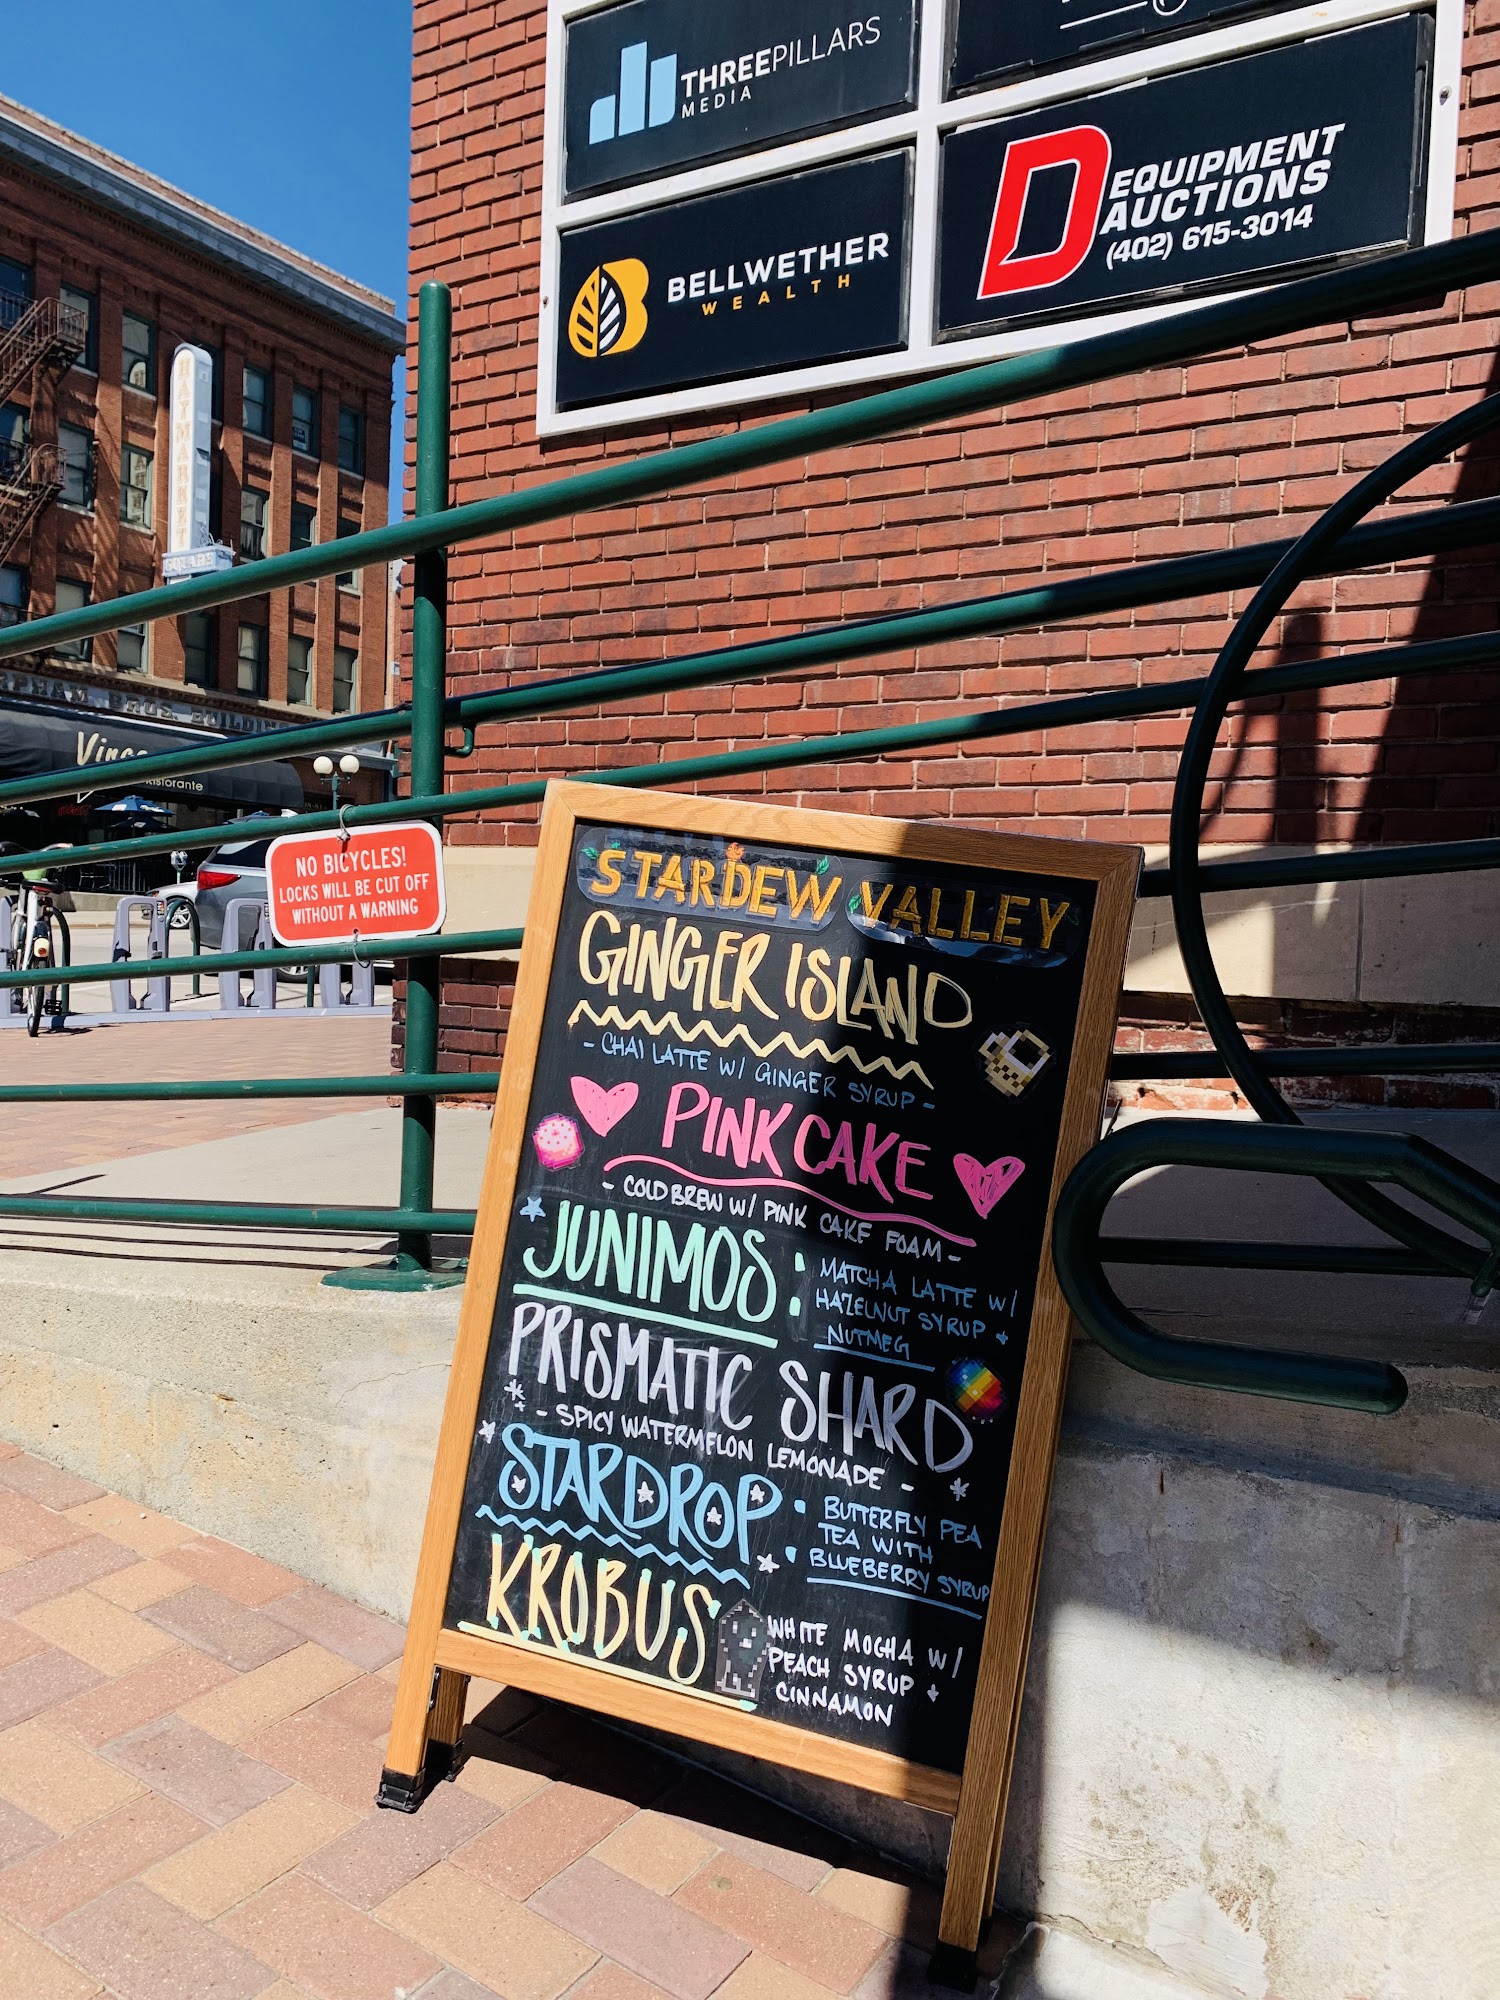 THREEPILLARS
MEDIA
BELLWETHER
WEALTH
D EQUIPMENT
AUCTIONS
(402) 615-3014
HAYMARKET
SQUARE
BROS. BUILDING
Ristorante
NO BICYCLES!
LOCKS WILL BE CUT OFF
WITHOUT A WARNING
STARDEW VALLEY
GINGER ISLAND
- CHAI LATTE W/ GINGER SYRUP -
PINK CAKE
- COLD BREW W/ PINK CAKE FOAM -
JUNIMOS:
MATCHA LATTE W/
HAZELNUT SYRUP +
NUTMEG
PRISMATIC SHARD
- SPICY WATERMELON LEMONADE -
STARDROP:
BUTTERFLY PEA
TEA WITH
BLUEBERRY SYRUP
KROBUS
WHITE MOCHA W/
PEACH SYRUP +
CINNAMON